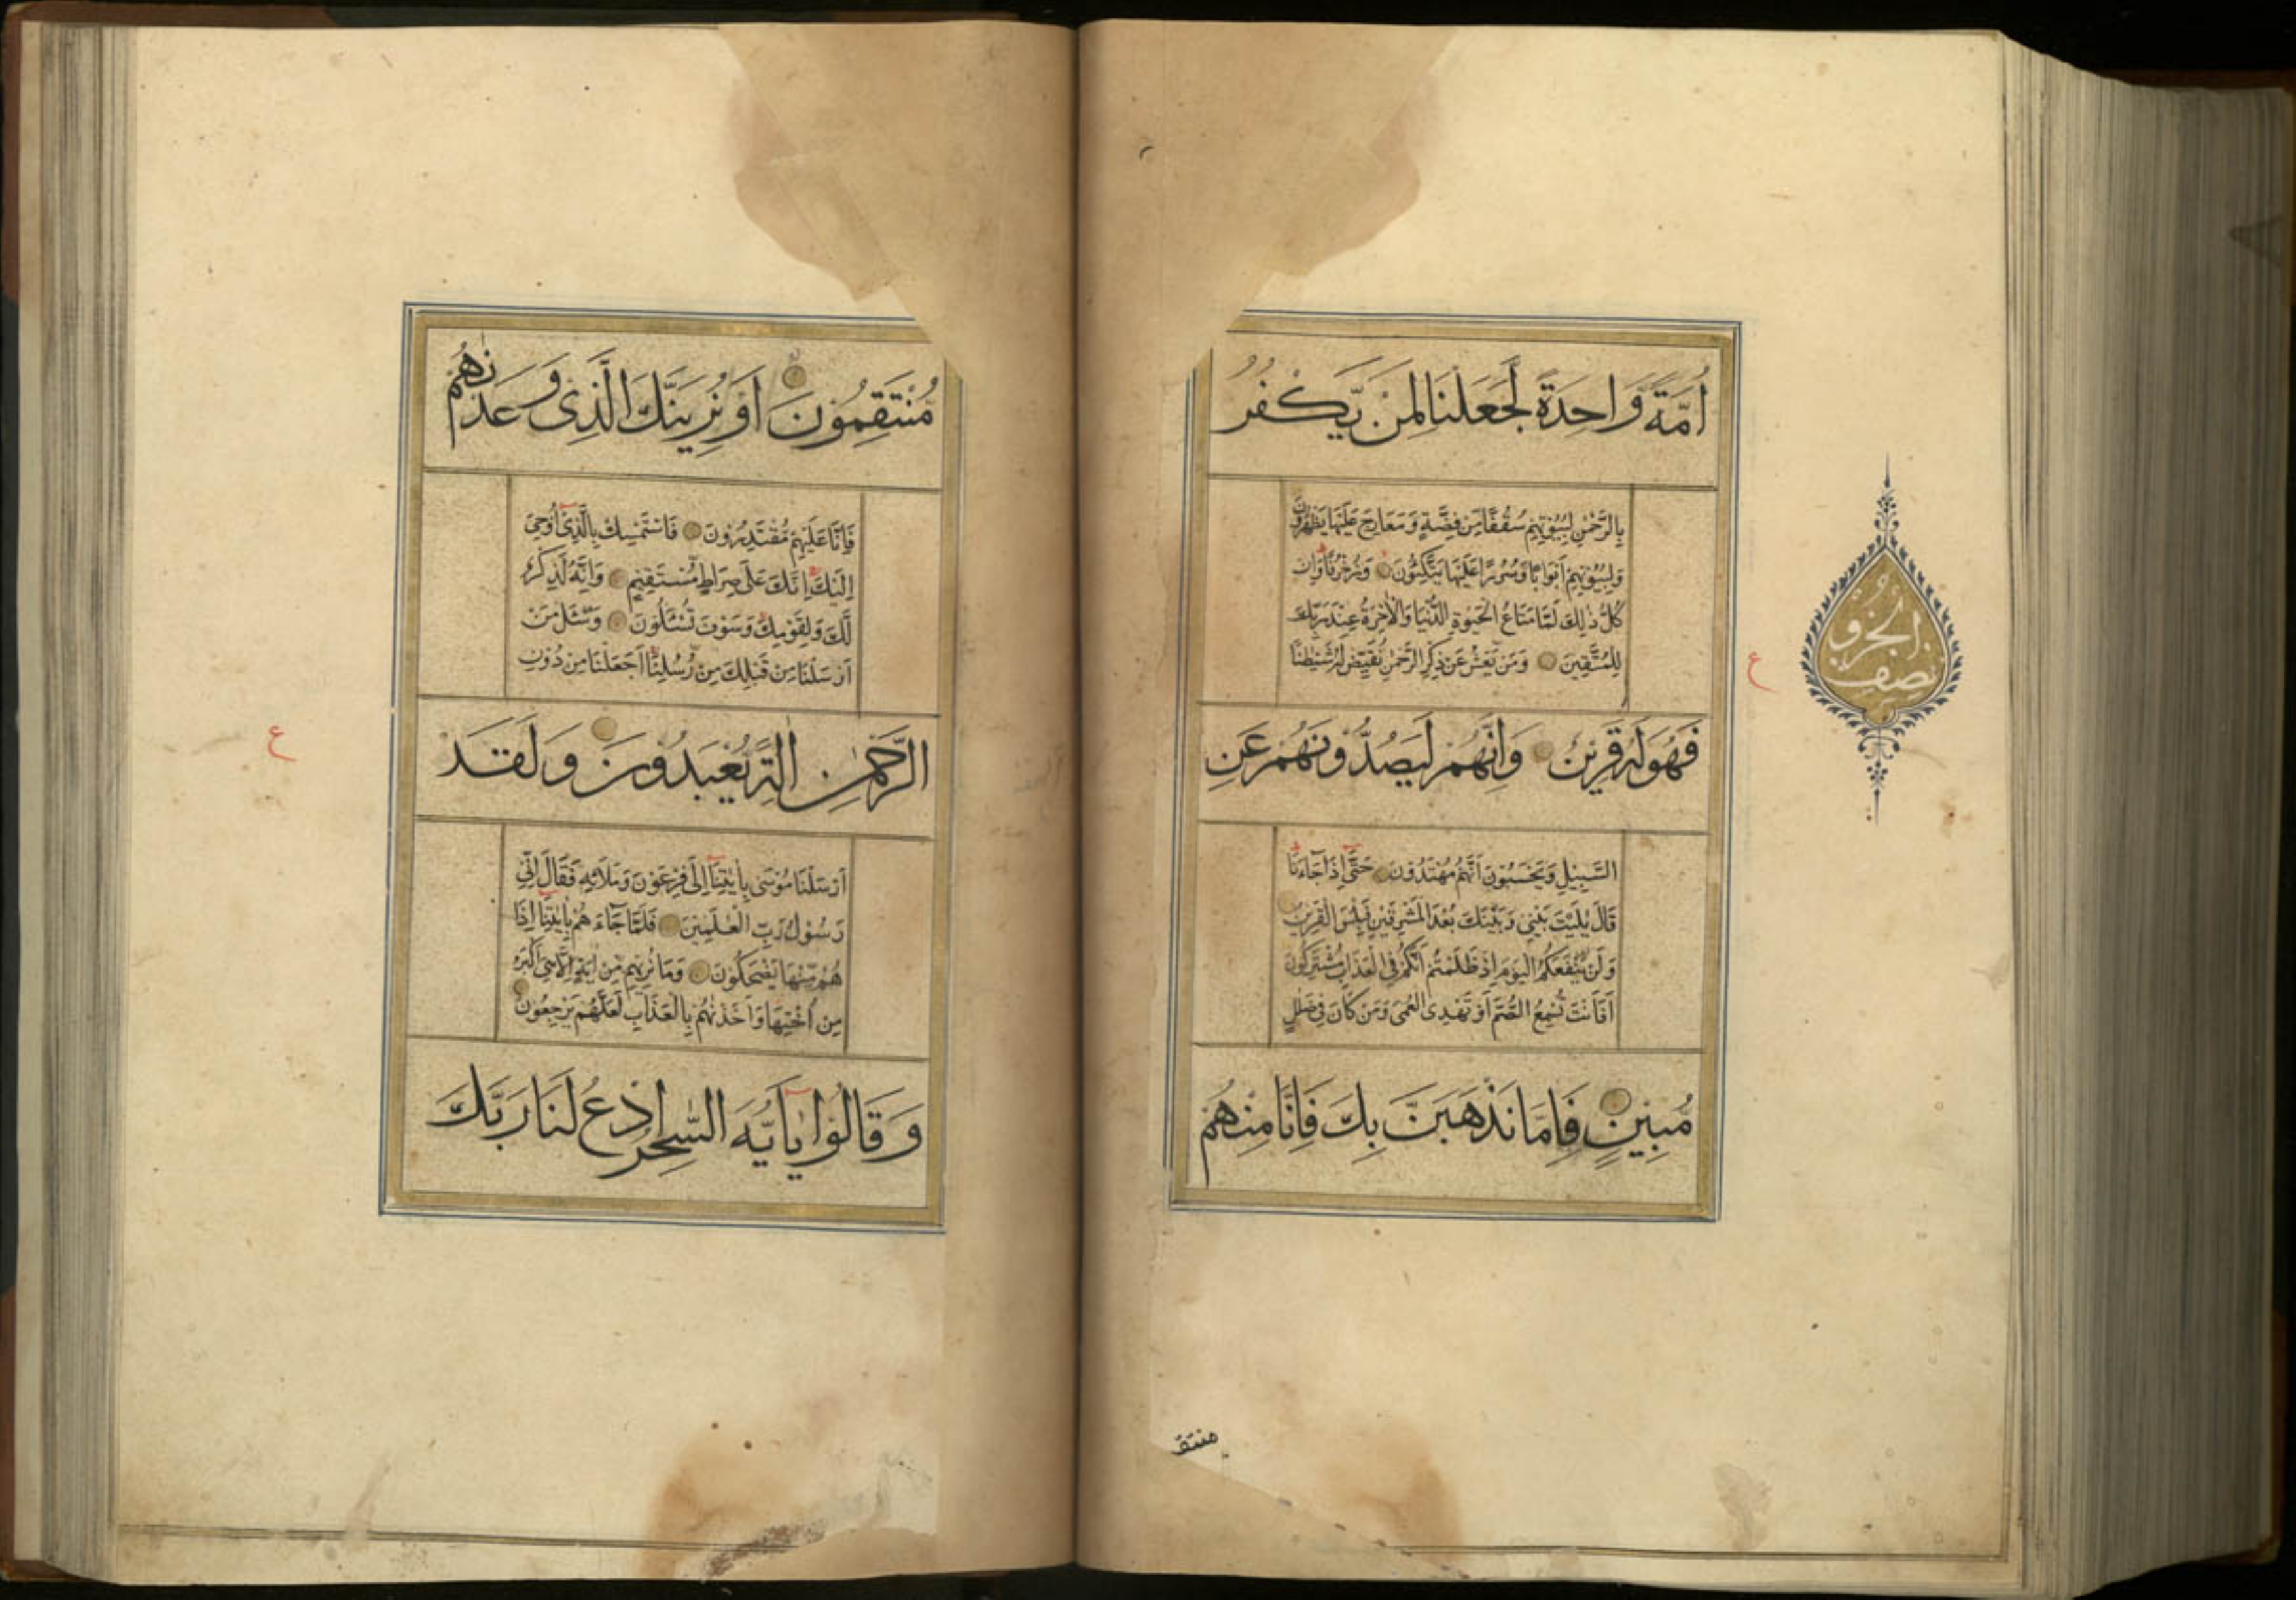 اُمَّةً وَّاحِدَةً لَّجَعَلْنَا لِمَنْ يَّكْفُرُ
بِالرَّحْمٰنِ لِبُيُوْتِهِمْ سُقُفًا مِّنْ فِضَّةٍ وَّمَعَارِجَ عَلَيْهَا يَظْهَرُوْنَ
وَلِبُيُوْتِهِمْ اَبْوَابًا وَّسُرُرًا عَلَيْهَا يَتَّكِـُٔوْنَ وَزُخْرُفًا وَاِنْ
كُلُّ ذٰلِكَ لَمَّا مَتَاعُ الْحَيٰوةِ الدُّنْيَا وَالْاٰخِرَةُ عِنْدَ رَبِّكَ
لِلْمُتَّقِيْنَ وَمَنْ يَّعْشُ عَنْ ذِكْرِ الرَّحْمٰنِ نُقَيِّضْ لَهٗ شَيْطٰنًا
فَهُوَ لَهٗ قَرِيْنٌ وَاِنَّهُمْ لَيَصُدُّوْنَهُمْ عَنِ
السَّبِيْلِ وَيَحْسَبُوْنَ اَنَّهُمْ مُّهْتَدُوْنَ حَتّٰى اِذَا جَآءَنَا
قَالَ يٰلَيْتَ بَيْنِيْ وَبَيْنَكَ بُعْدَ الْمَشْرِقَيْنِ فَبِئْسَ الْقَرِيْنُ
وَلَنْ يَّنْفَعَكُمُ الْيَوْمَ اِذْ ظَّلَمْتُمْ اَنَّكُمْ فِى الْعَذَابِ مُشْتَرِكُوْنَ
اَفَاَنْتَ تُسْمِعُ الصُّمَّ اَوْ تَهْدِى الْعُمْىَ وَمَنْ كَانَ فِيْ ضَلٰلٍ
مُّبِيْنٍ فَاِمَّا نَذْهَبَنَّ بِكَ فَاِنَّا مِنْهُمْ
ع
نصف
الجزو
منتقـ
مُّنْتَقِمُوْنَ اَوْ نُرِيَنَّكَ الَّذِى وَعَدْنٰهُمْ
فَاِنَّا عَلَيْهِمْ مُّقْتَدِرُوْنَ فَاسْتَمْسِكْ بِالَّذِيْٓ اُوْحِىَ
اِلَيْكَ اِنَّكَ عَلٰى صِرَاطٍ مُّسْتَقِيْمٍ وَاِنَّهٗ لَذِكْرٌ
لَّكَ وَلِقَوْمِكَ وَسَوْفَ تُسْـَٔلُوْنَ وَسْـَٔلْ مَنْ
اَرْسَلْنَا مِنْ قَبْلِكَ مِنْ رُّسُلِنَآ اَجَعَلْنَا مِنْ دُوْنِ
الرَّحْمٰنِ اٰلِهَةً يُّعْبَدُوْنَ وَلَقَدْ
اَرْسَلْنَا مُوْسٰى بِاٰيٰتِنَآ اِلٰى فِرْعَوْنَ وَمَلَا۟ئِهٖ فَقَالَ اِنِّيْ
رَسُوْلُ رَبِّ الْعٰلَمِيْنَ فَلَمَّا جَآءَهُمْ بِاٰيٰتِنَآ اِذَا
هُمْ مِّنْهَا يَضْحَكُوْنَ وَمَا نُرِيْهِمْ مِّنْ اٰيَةٍ اِلَّا هِىَ اَكْبَرُ
مِنْ اُخْتِهَا وَاَخَذْنٰهُمْ بِالْعَذَابِ لَعَلَّهُمْ يَرْجِعُوْنَ
وَقَالُوْا يٰٓاَيُّهَ السّٰحِرُ ادْعُ لَنَا رَبَّكَ
ع